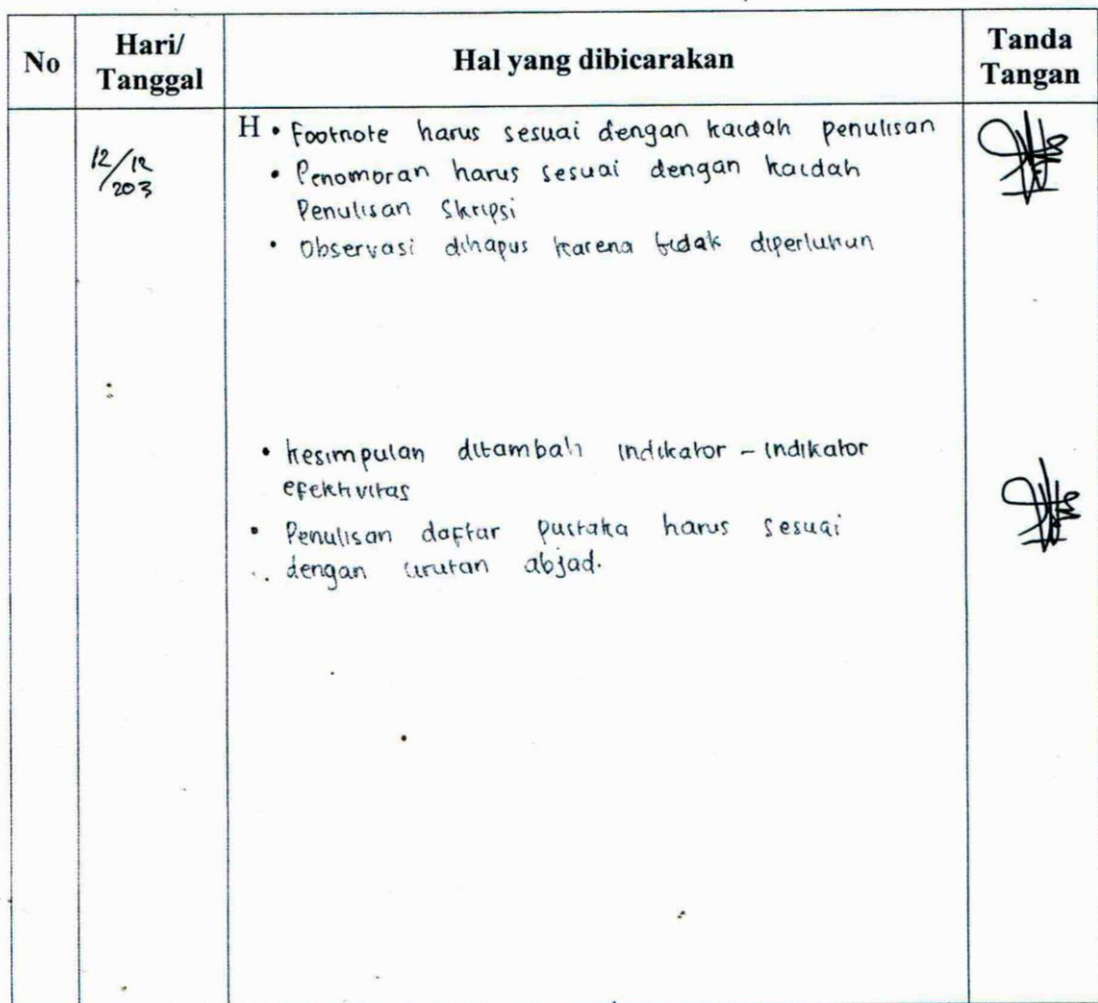 No
Hari/
Tanggal
Hal yang dibicarakan
Tanda
Tangan
12/12
/203
H • Footnote harus sesuai dengan kaidah penulisan
• Penomoran harus sesuai dengan kaidah
Penulisan Skripsi
• Observasi dihapus karena tidak diperlukan
• kesimpulan ditambah indikator - indikator
efektivitas
• Penulisan daftar pustaka harus sesuai
dengan urutan abjad.